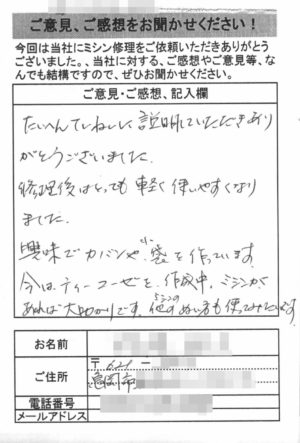 ご意見、ご感想をお聞かせください！
今回は当社にミシン修理をご依頼いただきありがとう
ございました。、当社に対する、ご感想やご意見等、な
んでも結構ですので、ぜひお聞かせください。
ご意見・ご感想、記入欄
たいへんていねいに説明していただきあり
がとうございました.
修理後はとっても軽く使いやすくなり
ました.
興味でカバンや、小袋を作っています
今は、ティーコーゼを、作成中。ミシンが
あれば大助かりです。他の
ぬい方も使ってみたいです
お名前
ご住所
〒621-
亀岡市
電話番号
メールアドレス